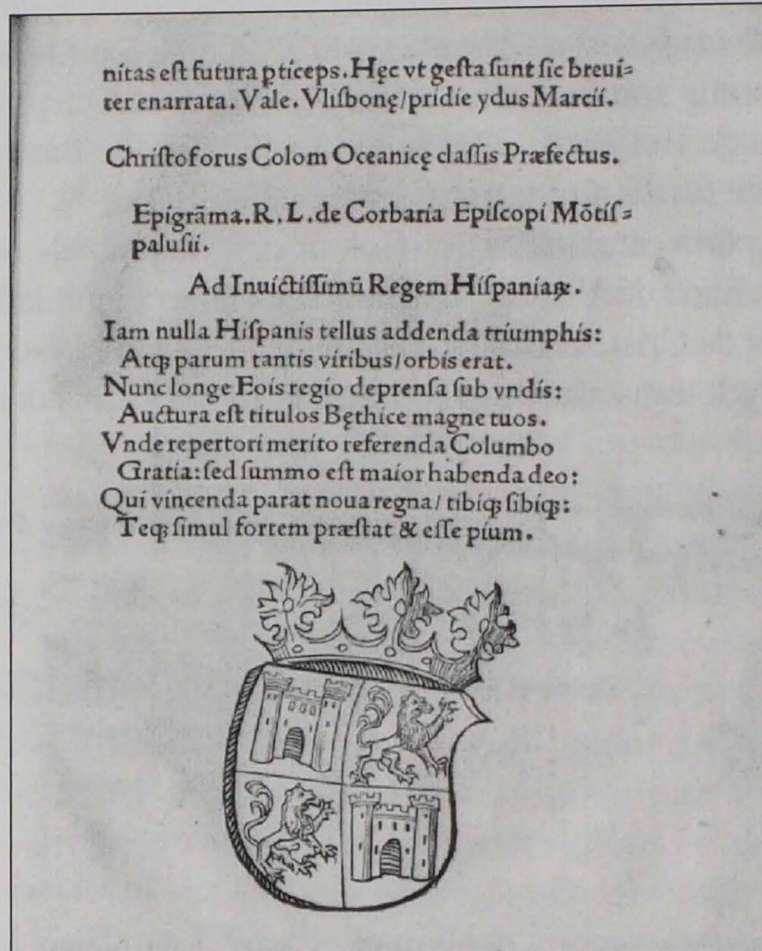 nitas eſt futura ꝑticeps. Hęc vt geſta ſunt ſic breui⸗
ter enarrata. Vale. Vliſbonę/pridie ydus Marcii.
Chriſtoforus Colom Oceanicę claſſis Præfectus.
Epigrāma. R. L. de Corbaria Epiſcopi Mōtiſ⸗
paluſii.
Ad Inuictiſſimū Regem Hiſpaniaꝝ.
Iam nulla Hiſpanis tellus addenda triumphis:
Atqꝫ parum tantis viribus/orbis erat.
Nunc longe Eois regio deprenſa ſub vndis:
Auctura eſt titulos Bęthice magne tuos.
Vnde repertori merito referenda Columbo
Gratia: ſed ſummo eſt maior habenda deo:
Qui vincenda parat noua regna/tibiqꝫ ſibiqꝫ:
Teqꝫ ſimul fortem præſtat & eſſe pium.